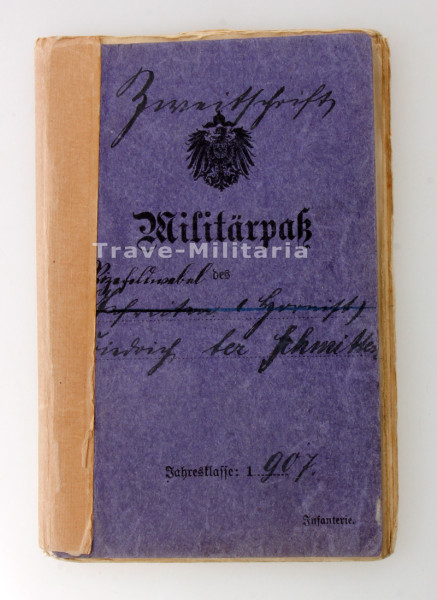 Zweitschrift
Militärpaß
Trave-Militaria
Vizefeldwebel des
(Hornist)
iedrich ter Schmitten
Jahresklasse: 1907.
Infanterie.